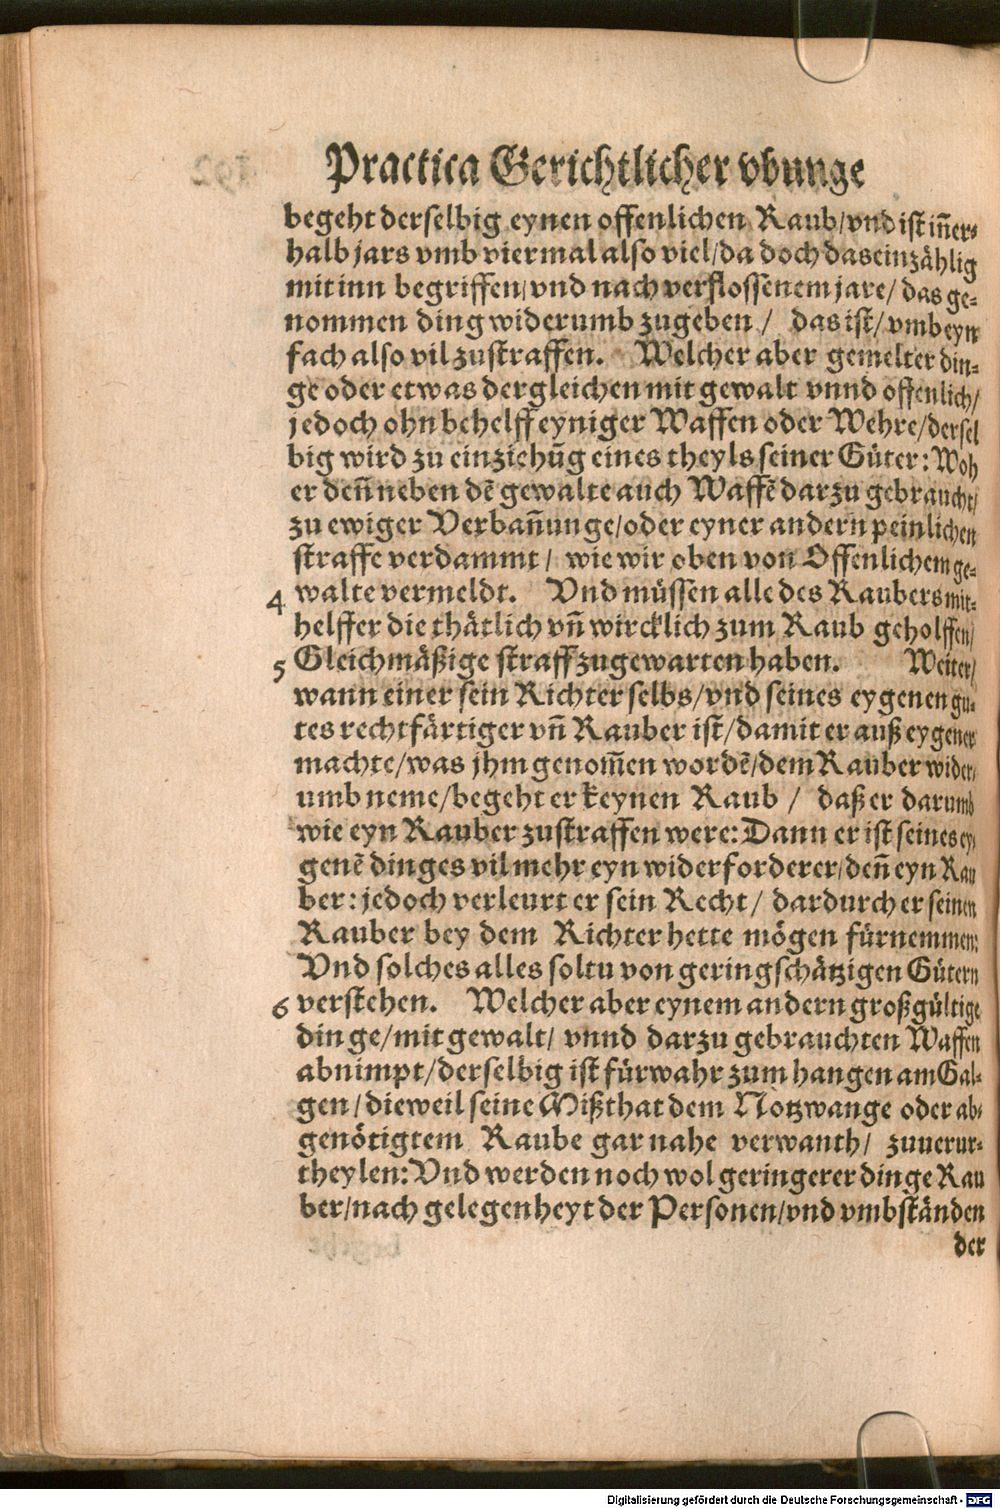 Practica Gerichtlicher vbunge
begeht derselbig eynen offenlichen Raub/vnd ist iñer⸗
halb jars vmb viermal also viel/da doch das einzählig
mitinn begriffen/vnd nach verflossenem jare/ das ge⸗
nommen ding widerumb zugeben / das ist/vmb eyn
fach also vil zustraffen. Welcher aber gemelter din⸗
ge oder etwas dergleichen mit gewalt vnnd offenlich/
jedoch ohn behelff eyniger Waffen oder Wehre/dersel
big wird zu einziehũg eines theyls seiner Güter: Woh
er deñ neben dẽ gewalte auch Waffẽ darzu gebraucht/
zu ewiger Verbañunge/oder eyner andern peinlichen
straffe verdammt / wie wir oben von Offenlichem ge⸗
4 walte vermeldt. Vnd müssen alle des Raubers mit⸗
helffer die thätlich vñ wircklich zum Raub geholffen/
5 Gleichmäßige straff zugewarten haben. Weiter/
wann einer sein Richter selbs/vnd seines eygenen gu⸗
tes rechtfärtiger vñ Rauber ist/damit er auß eygener
machte/was jhm genom̃en wordẽ/dem Rauber wider/
umb neme/begeht er keynen Raub / daß er darumb
wie eyn Rauber zustraffen were: Dann er ist seines ey⸗
genẽ dinges vil mehr eyn widerforderer/deñ eyn Rau
ber: jedoch verleurt er sein Recht/ dardurch er seinen
Rauber bey dem Richter hette mögen fürnemmen:
Vnd solches alles soltu von geringschätzigen Gütern
6 verstehen. Welcher aber eynem andern großgültige
dinge/mit gewalt/ vnnd darzu gebrauchten Waffen
abnimpt/derselbig ist fürwahr zum hangen am Gal⸗
gen/dieweil seine Mißthat dem Notzwange oder ab⸗
genötigtem Raube gar nahe verwanth/ zuuerur⸗
theylen: Vnd werden noch wol geringerer dinge Rau
ber/nach gelegenheyt der Personen/vnd vmbständen
der
Digitalisierung gefördert durch die Deutsche Forschungsgemeinschaft - DFG